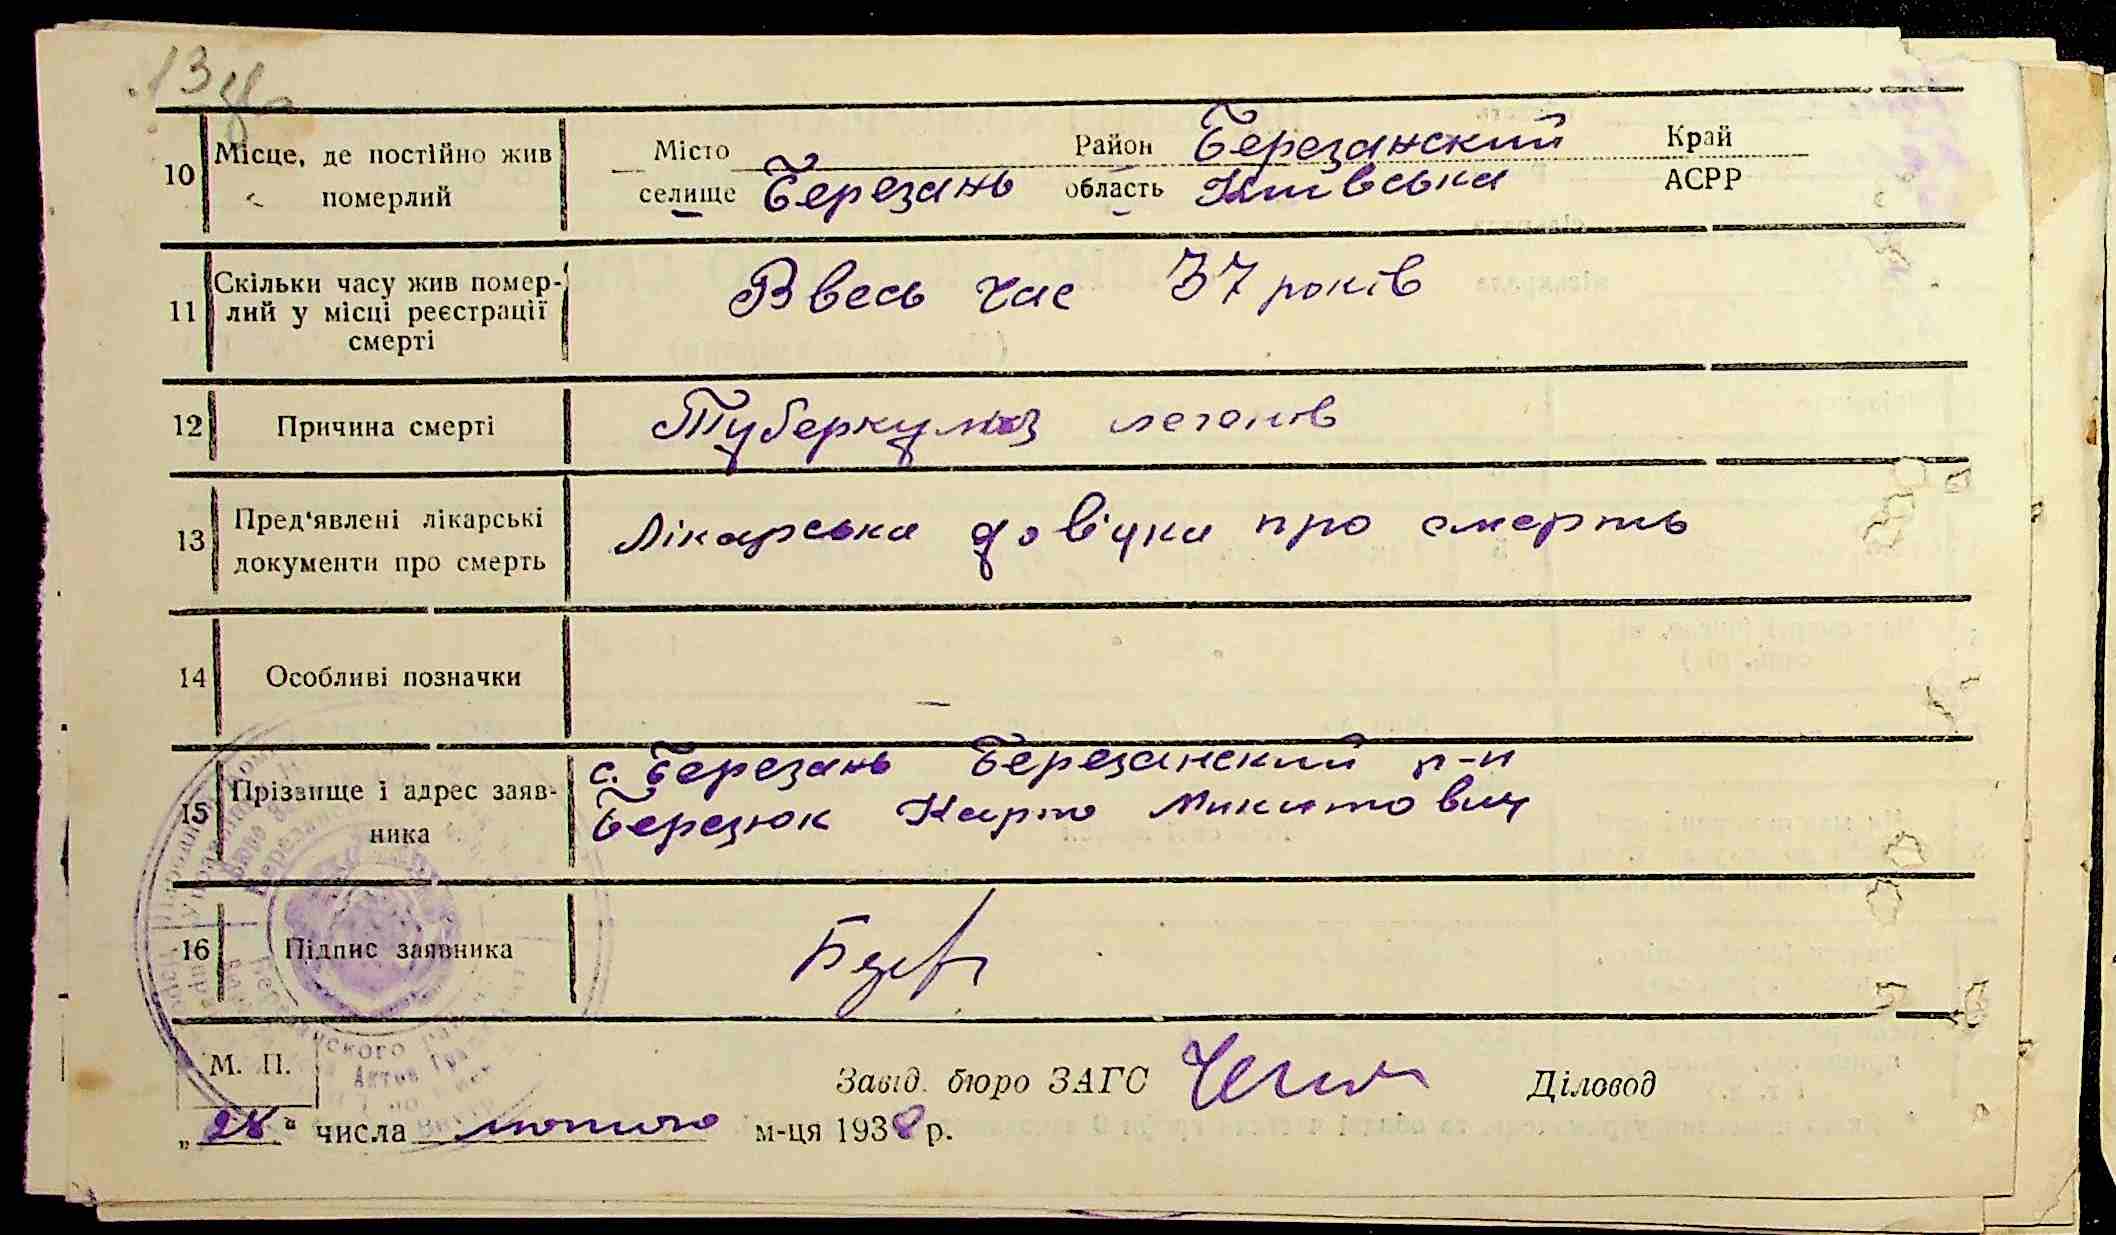 13 зв
10 Місце, де постійно жив померлий
Місто Район Березанский Край
селище Березань область Київська АСРР
11 Скільки часу жив помер-
лий у місці реєстрації
смерті
Ввесь час 37 років
12 Причина смерті Туберкульоз легенів
13 Пред'явлені лікарські
документи про смерть
Лікарська довічка про смерть
14 Особливі позначки —
15 Прізвище і адрес заяв-
ника
с. Березань Березанский р-н
Березюк Карто Микитович
16 Підпис заявника
М. П.
Завід. бюро ЗАГС Діловод
„28“ числа лютого м-ця 1938 р.